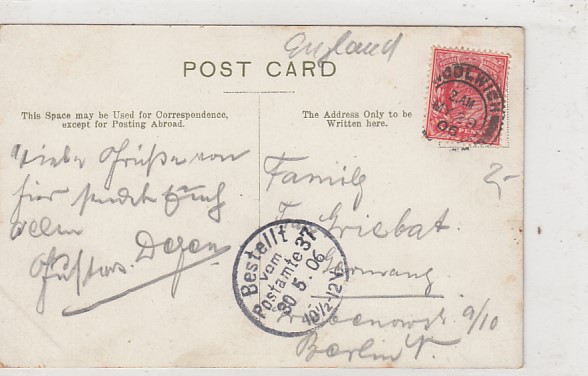 England
POST CARD
This Space may be Used for Correspondence,
except for Posting Abroad.
The Address Only to be
Written here.
WOOLWICH
MY 29
06
Viele Grüße von
hier sendet Euch
allen
Gustav. Degen
Family
F. Griebat
Germany
9/10
Berlin N.
2,-
Bestellt
vom
Postamte 37
30 5. 06
10½-12V.